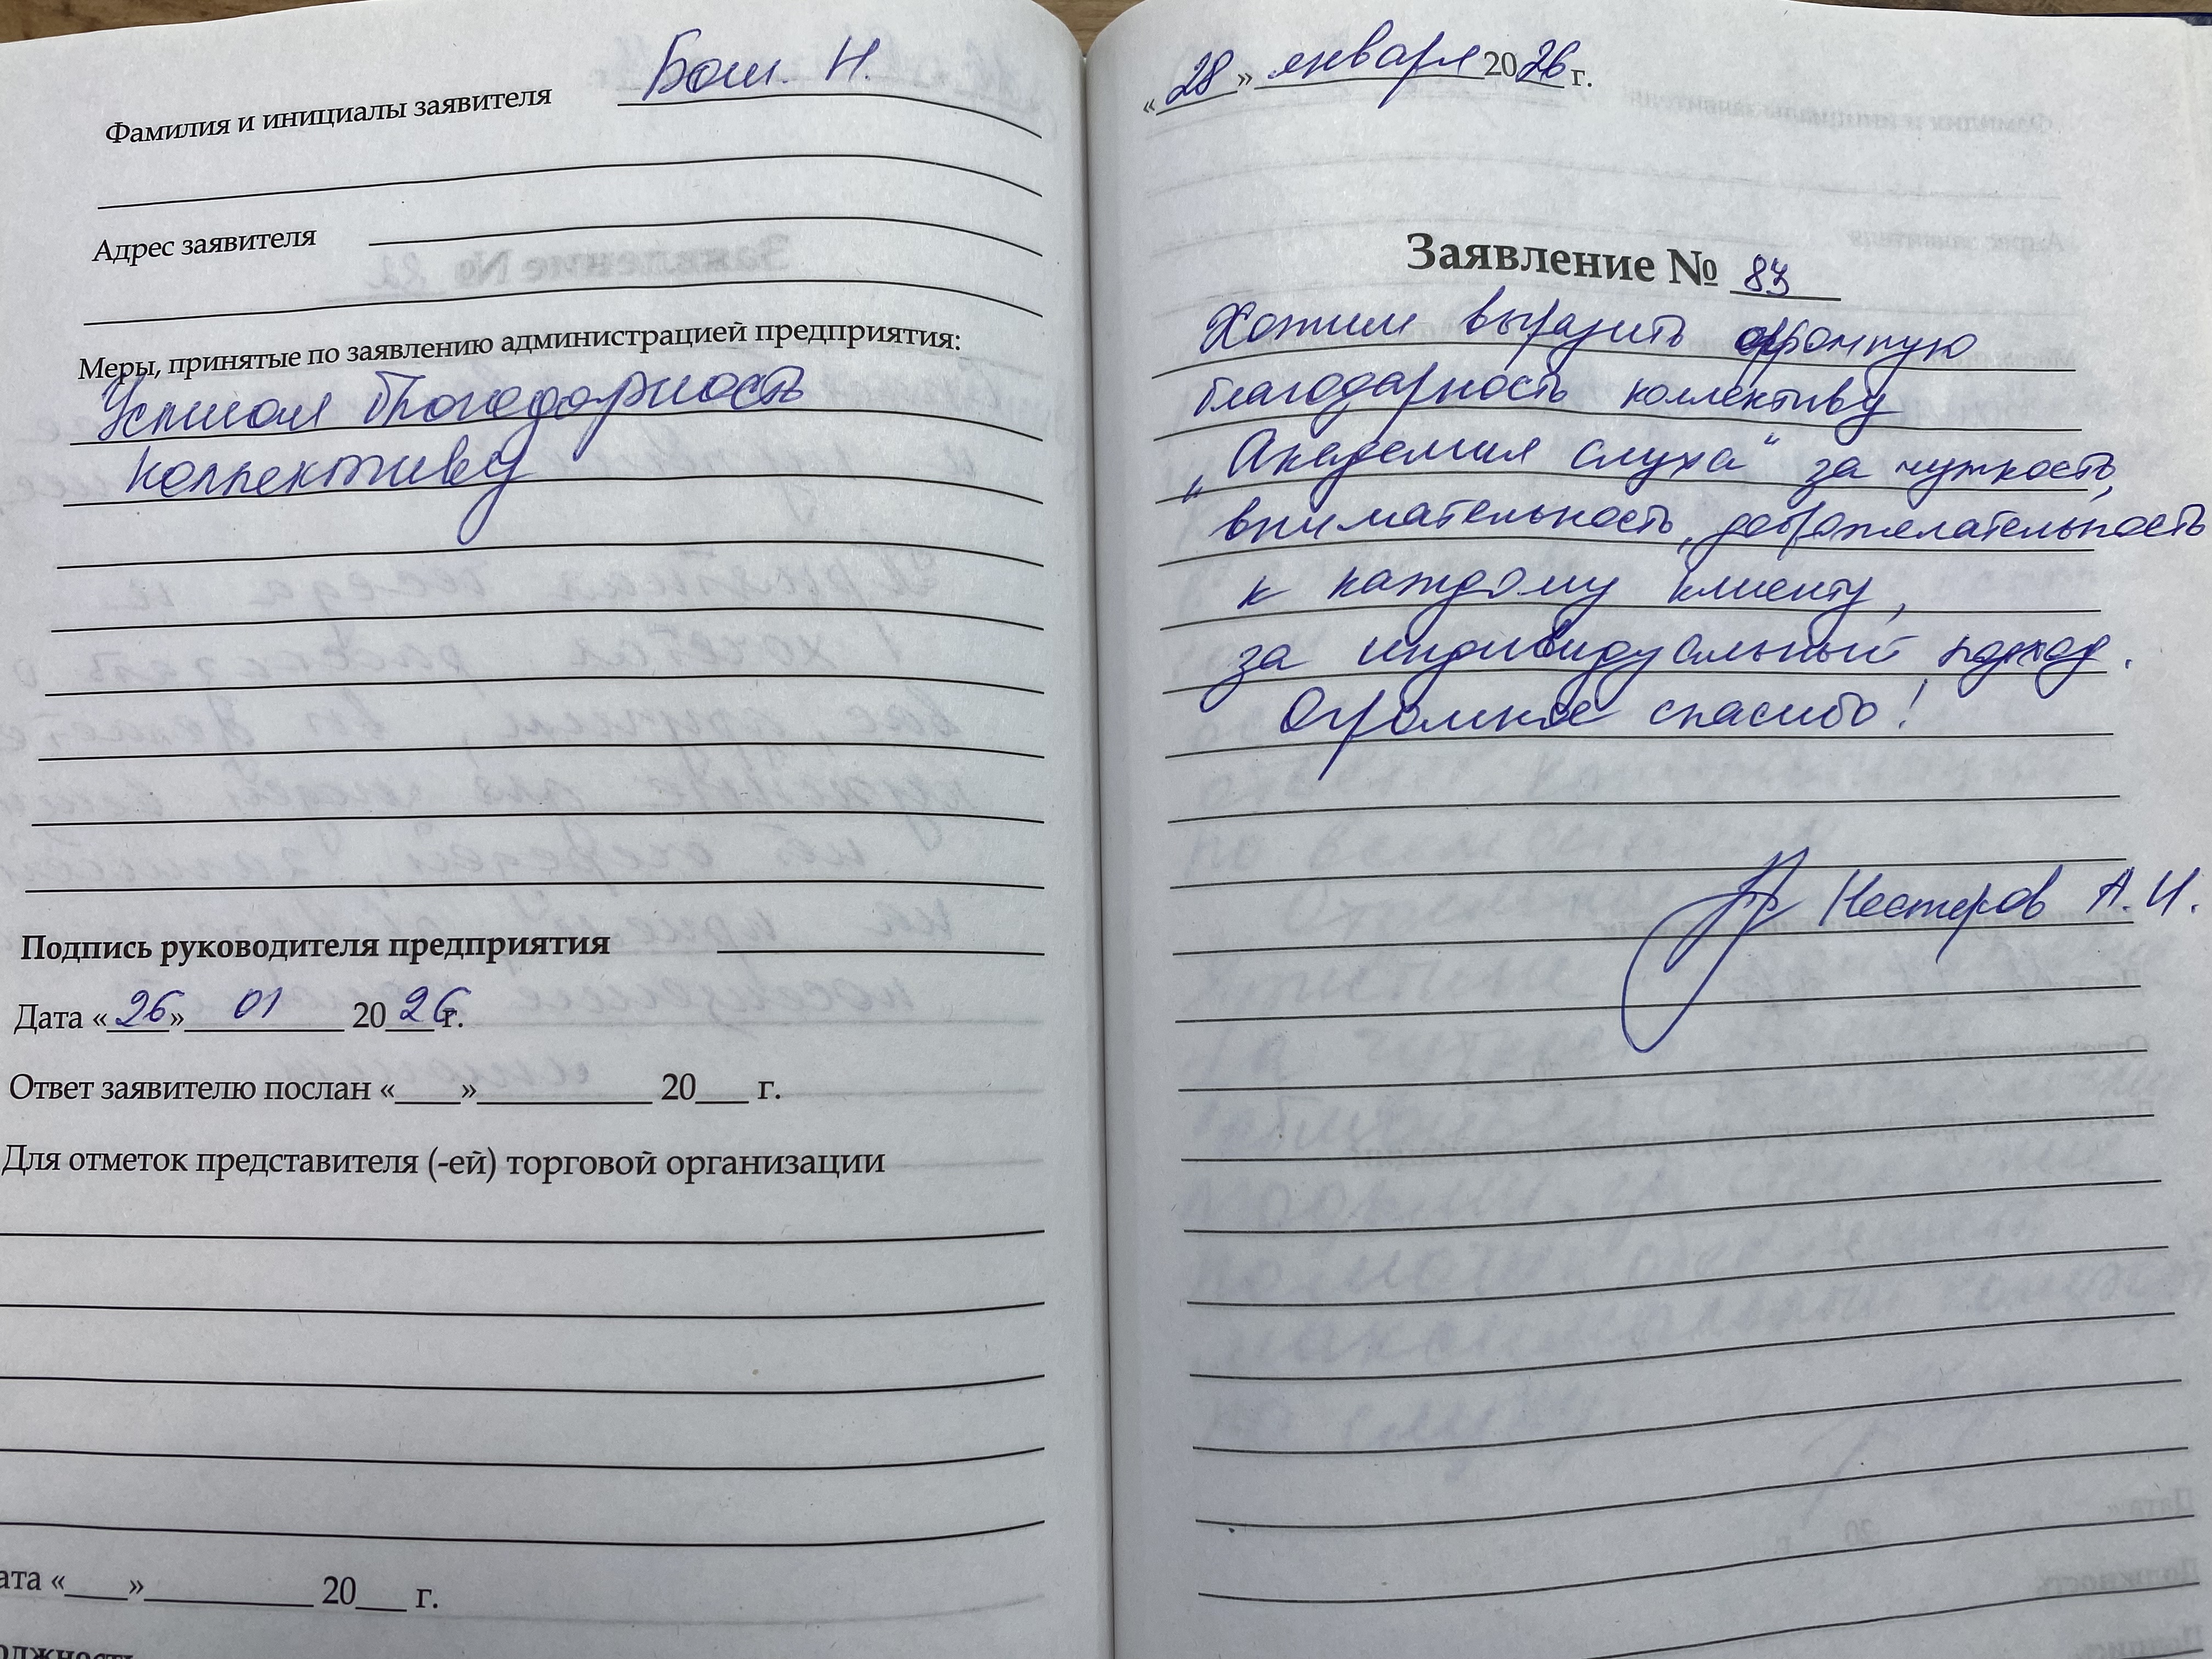 Фамилия и инициалы заявителя Бош. Н.
Адрес заявителя
Меры, принятые по заявлению администрацией предприятия:
Устная благодарность
коллективу
Подпись руководителя предприятия
Дата «26» 01 2026г.
Ответ заявителю послан «___»________ 20___ г.
Для отметок представителя (-ей) торговой организации
ата «___»________ 20___ г.
олжность
«28» января 2026 г.
Заявление № 83
Хотим выразить огромную
благодарность коллективу
„Академия слуха" за чуткость,
внимательность, доброжелательность
к каждому клиенту,
за индивидуальный подход.
Огромное спасибо!
Нестеров А.И.